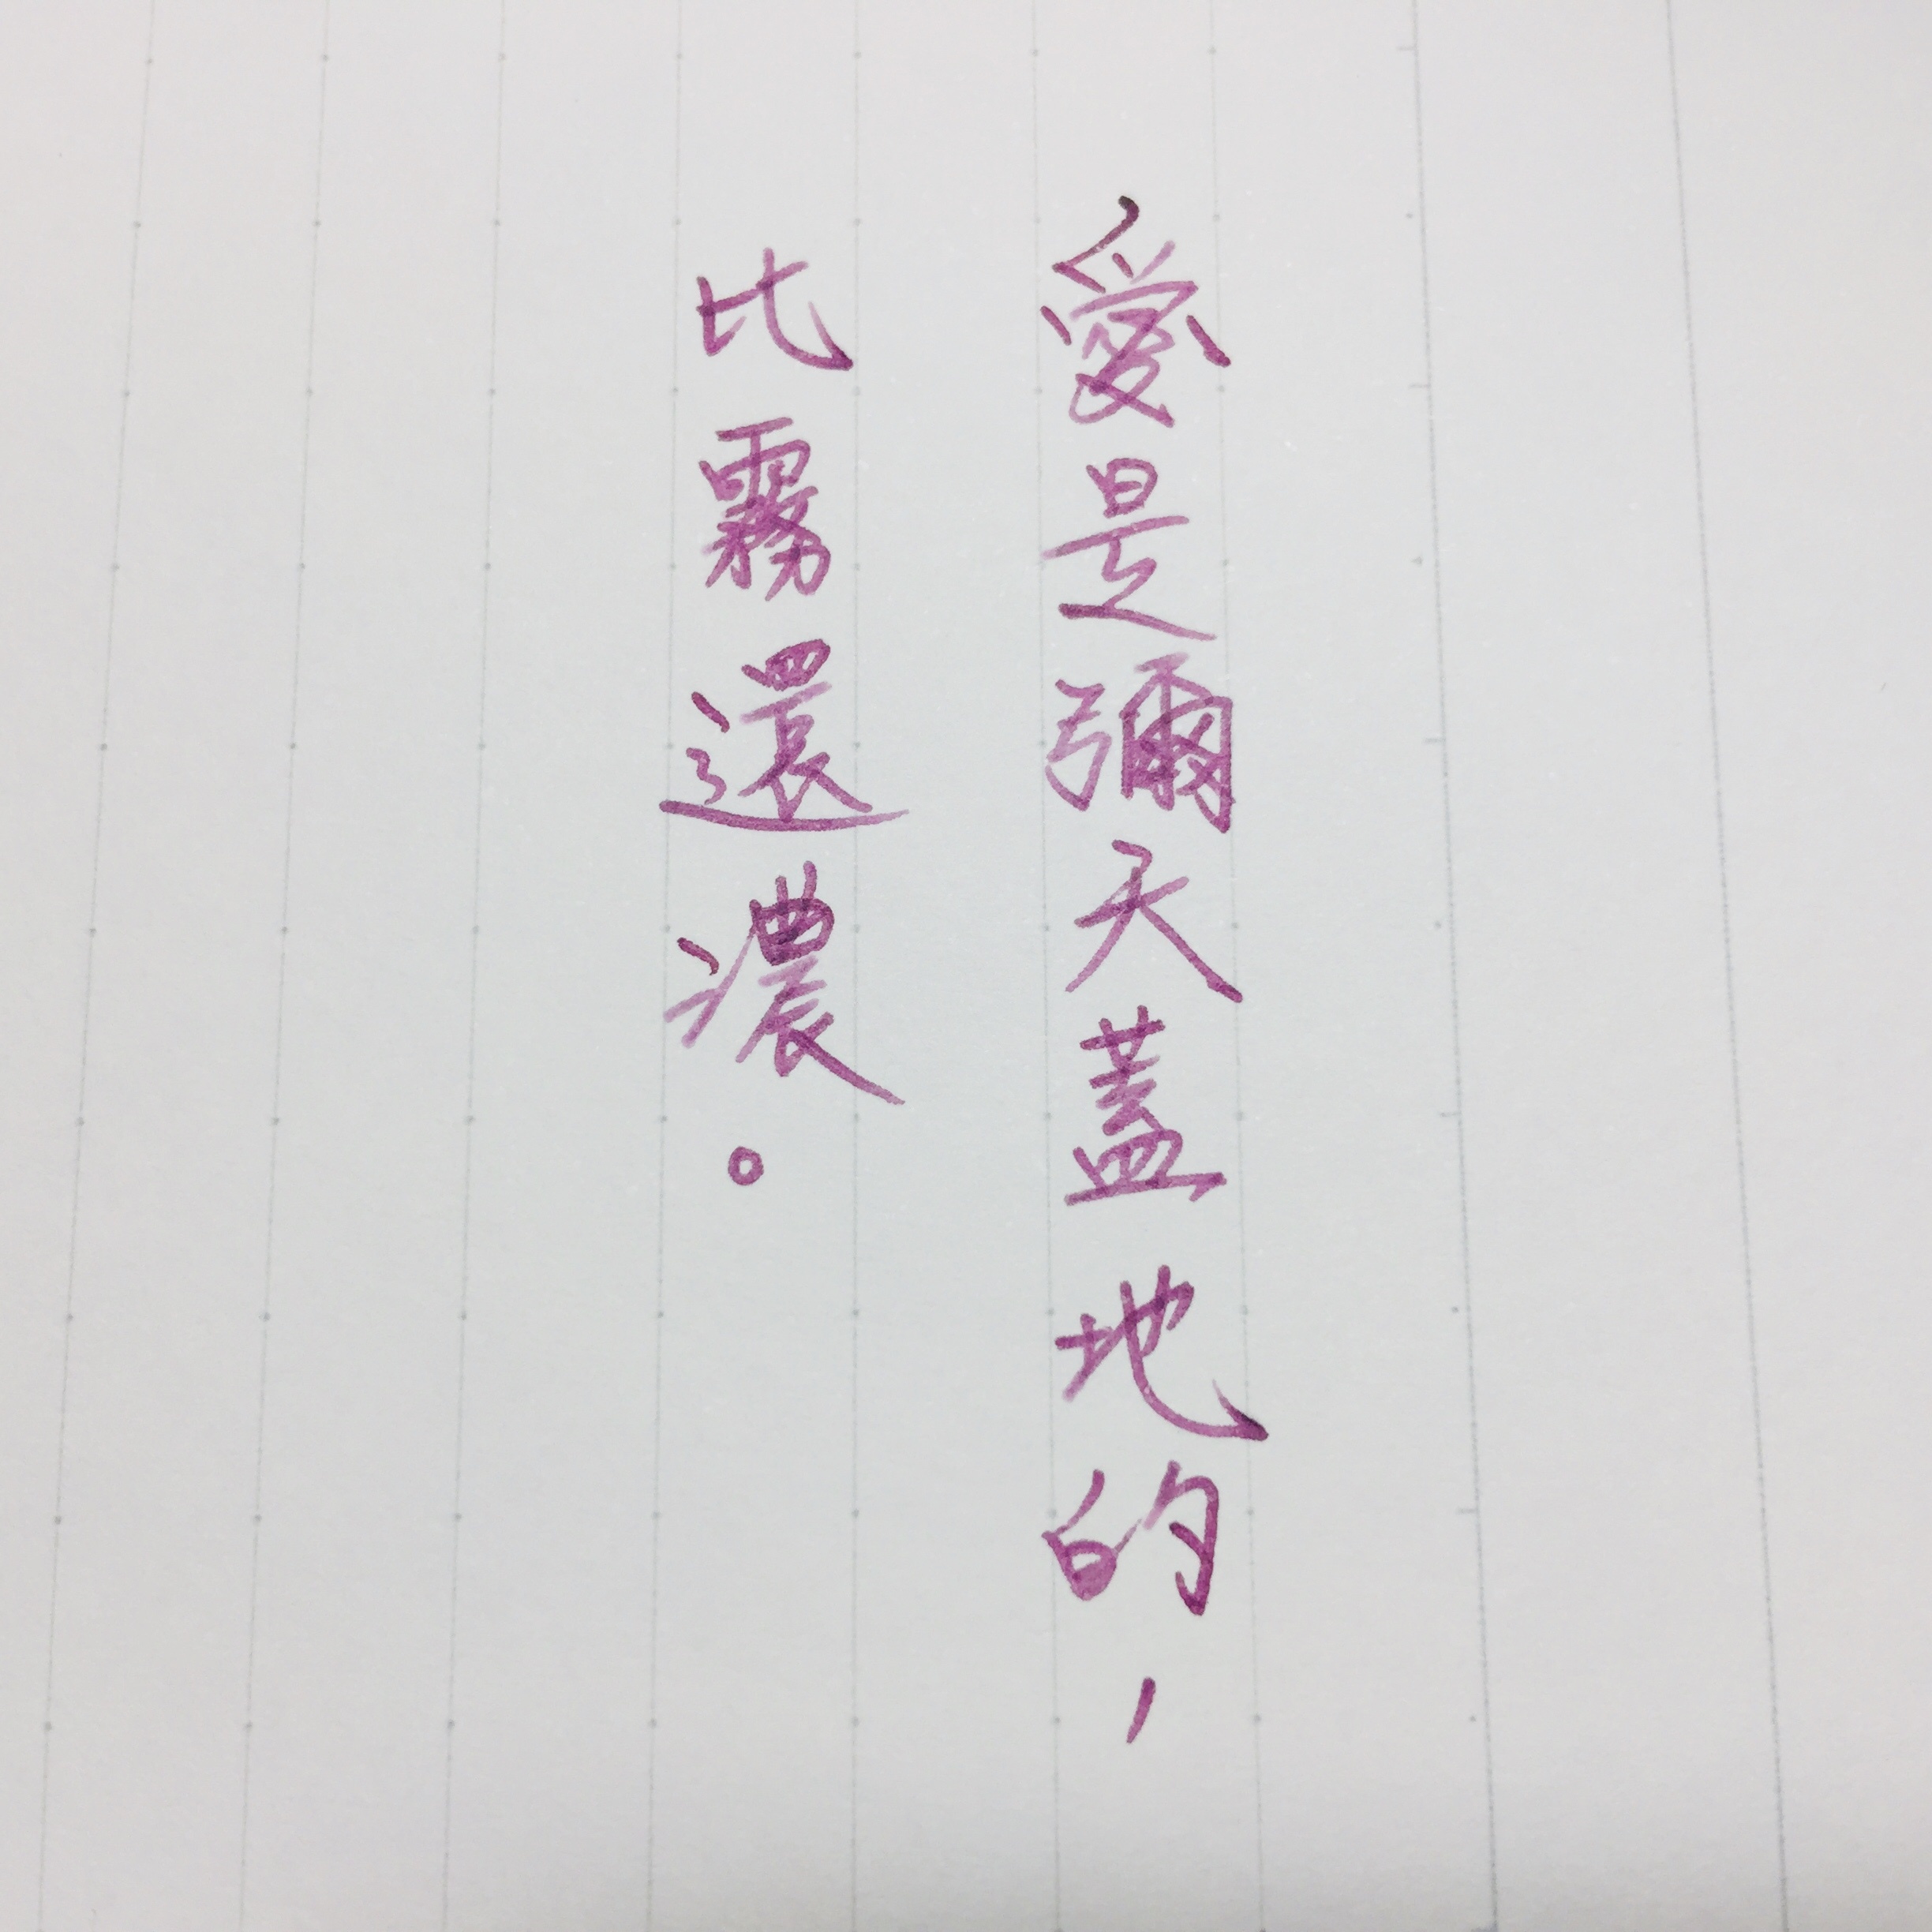 愛是彌天蓋地的，
比霧還濃。